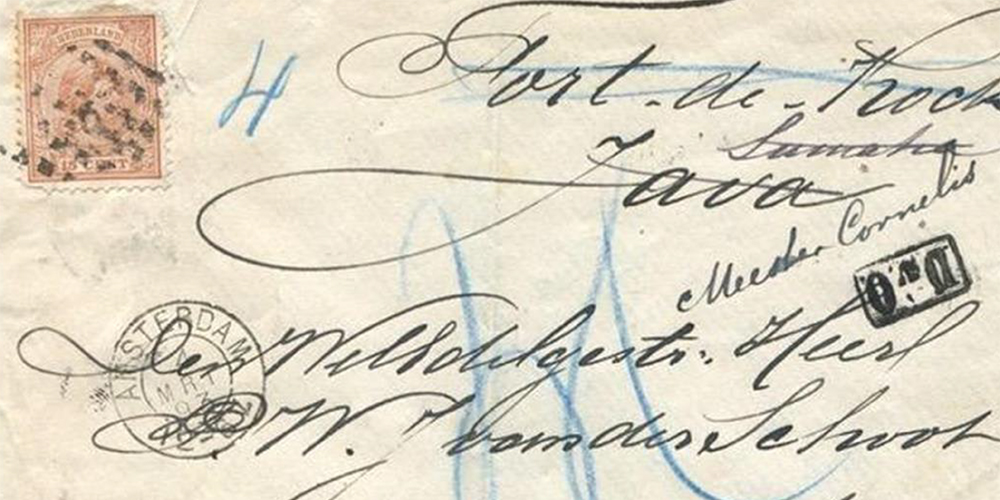 NEDERLAND
15 CENT
4
Fort-de-Kock
Sumatra
Java
Meester Cornelis
AMSTERDAM
MRT
Den WelEdelgestr. Heer
W. J. van der Schoot